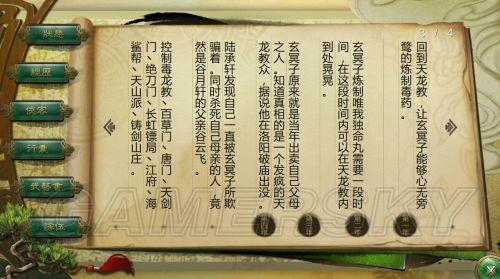 3 / 4
狀態
經歷
俠客
行囊
武藝書
隊伍
回到天龙教,让玄冥子能够心无旁
鹜的炼制毒药。
玄冥子炼制唯我独命丸需要一段时
间,在这段时间内可以在天龙教内
到处晃晃。
玄冥子原来就是当年出卖自己父母
之人。知道真相的是一个发疯的天
龙教众,据说他在洛阳破庙出没。
陆承轩发现自己一直被玄冥子所欺
骗着。同时杀死自己母亲的人,竟
然是谷月轩的父亲谷云飞。
控制毒龙教、百草门、唐门、天剑
门、绝刀门、长虹镖局、江府、海
鲨帮、天山派、铸剑山庄。
第一年
第二年
第三年
第四年
GAMERSKY